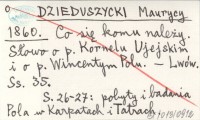 DZIEDUSZYCKI Maurycy
1860. Co się komu należy.
Słowo o p. Kornelu Ujejskim
i o p. Wincentym Polu. – Lwów.
Ss. 35.
S. 26-27: pobyty i badania
Pola w Karpatach i Tatrach